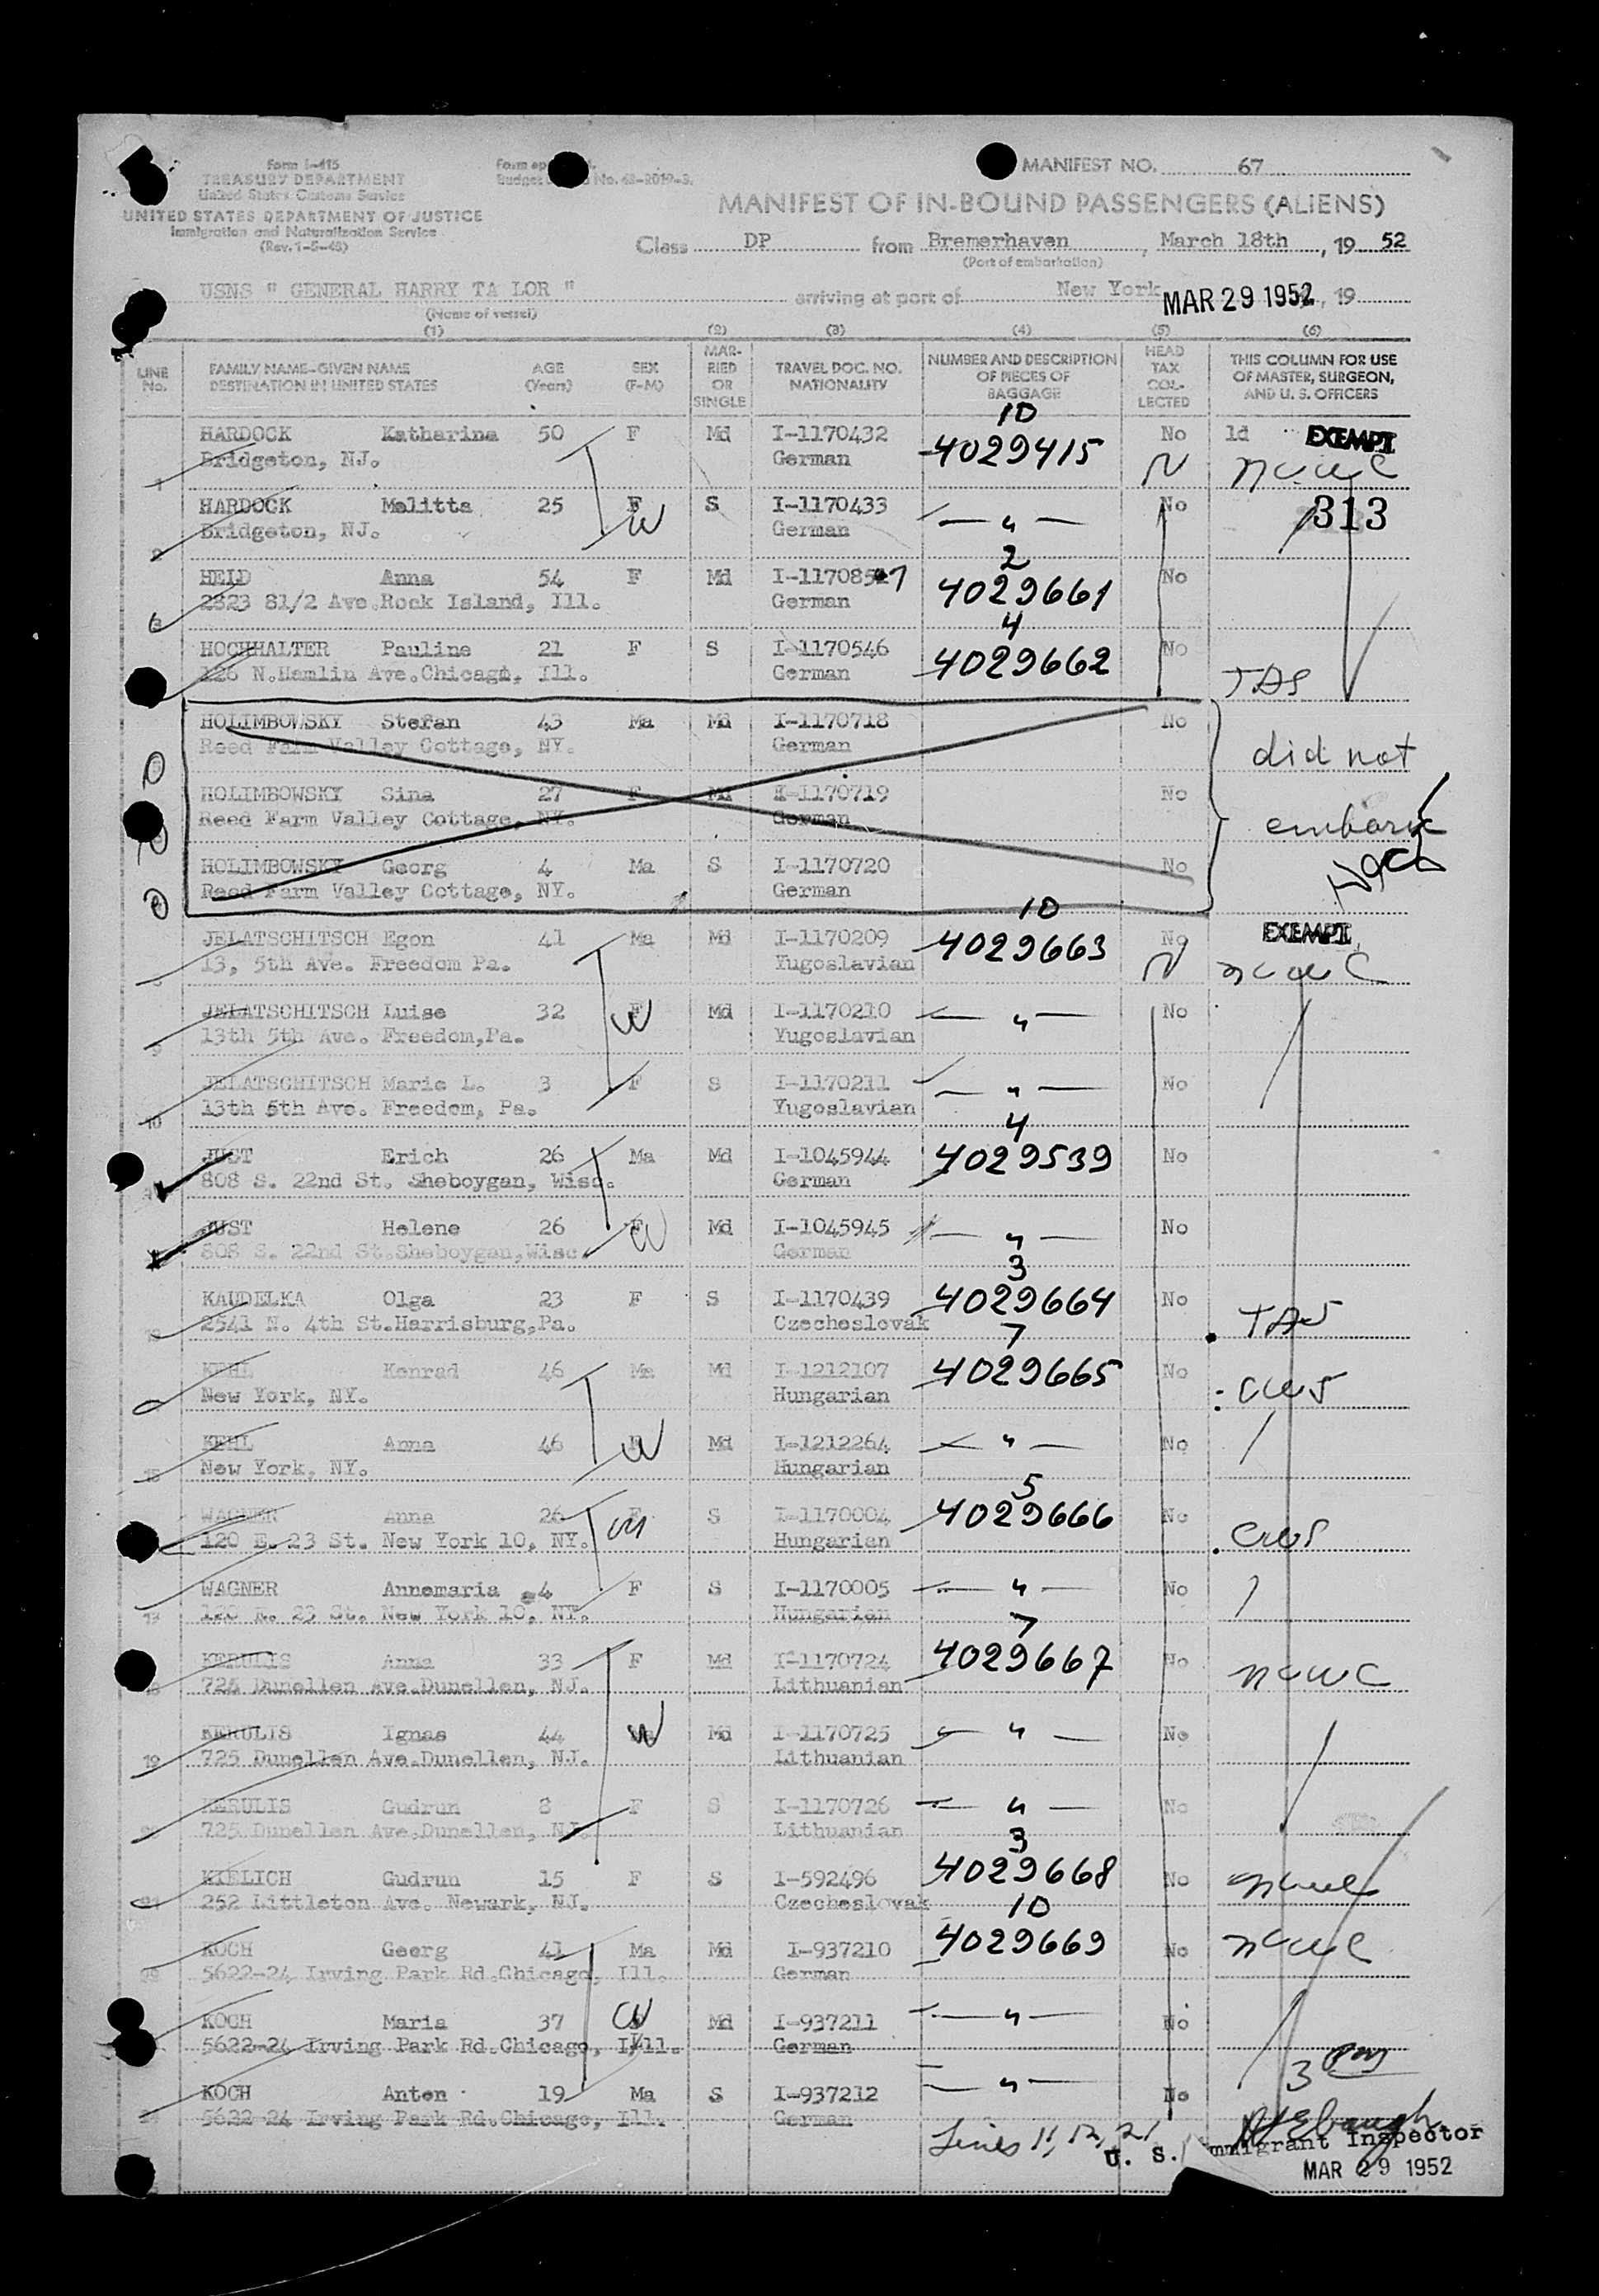 Form I-415
TREASURY DEPARTMENT
United States Customs Service
UNITED STATES DEPARTMENT OF JUSTICE
Immigration and Naturalization Service
(Rev. 1-5-48)
Form ap
Budget No. 43-R019-3.
MANIFEST NO. 67
MANIFEST OF IN-BOUND PASSENGERS (ALIENS)
Class DP from Bremerhaven, March 18th, 19 52
(Port of embarkation)
USNS " GENERAL HARRY TA LOR " arriving at port of New York MAR 29 1952, 19
(Name of vessel)
(1) (2) (3) (4) (5) (6)
LINE No. FAMILY NAME-GIVEN NAME DESTINATION IN UNITED STATES AGE (Years) SEX (F-M) MAR-RIED OR SINGLE TRAVEL DOC. NO. NATIONALITY NUMBER AND DESCRIPTION OF PIECES OF BAGGAGE HEAD TAX COL-LECTED THIS COLUMN FOR USE OF MASTER, SURGEON, AND U. S. OFFICERS
10
HARDOCK Katharina 50 F Md I-1170432 4029415 No ld EXEMPT
1 Bridgeton, NJ. German N ncwc
HARDOCK Melitta 25 F W S I-1170433 — " — No 313
2 Bridgeton, NJ. German
2
HELD Anna 54 F Md I-11708507 4029661 No
3 2823 81/2 Ave.Rock Island, Ill. German
4
HOCHHALTER Pauline 21 F S I-1170546 4029662 No
126 N.Hamlin Ave.Chicago, Ill. German TAS
HOLIMBOWSKY Stefan 43 Ma Md I-1170718 No
Reed Farm Valley Cottage, NY. German did not
HOLIMBOWSKY Sina 27 F Md I-1170719 No
Reed Farm Valley Cottage, NY. German embark
HOLIMBOWSKY Georg 4 Ma S I-1170720 No
Reed Farm Valley Cottage, NY. German
10
JELATSCHITSCH Egon 41 Ma Md I-1170209 4029663 No EXEMPT
13, 5th Ave. Freedom Pa. Yugoslavian N ncwc
JELATSCHITSCH Luise 32 F W Md I-1170210 — " — No
9 13th 5th Ave. Freedom,Pa. Yugoslavian
JELATSCHITSCH Marie L. 3 F S I-1170211 — " — No
10 13th 5th Ave. Freedom, Pa. Yugoslavian
4
JUST Erich 26 Ma Md I-1045944 4029539 No
808 S. 22nd St. Sheboygan, Wisc. German
JUST Helene 26 F W Md I-1045945 — " — No
808 S. 22nd St.Sheboygan,Wisc. German
3
KAUDELKA Olga 23 F S I-1170439 4029664 No
2541 N. 4th St.Harrisburg,Pa. Czecheslovak TAS
7
KEHL Konrad 46 Ma Md I-1212107 4029665 No
New York, NY. Hungarian CWS
KEHL Anna 46 F W Md I-1212264 — " — No
15 New York, NY. Hungarian
5
WAGNER Anna 26 F S I-1170004 4029666 No
120 E. 23 St. New York 10, NY. Hungarian CWS
WAGNER Annemaria 4 F S I-1170005 — " — No
17 120 E. 23 St. New York 10, NY. Hungarian
7
KERULIS Anna 33 F Md I-1170724 4029667 No
18 725 Dunellen Ave.Dunellen, NJ. Lithuanian ncwc
KERULIS Ignas 44 Ma W Md I-1170725 — " — No
19 725 Dunellen Ave.Dunellen, NJ. Lithuanian
KERULIS Gudrun 8 F S I-1170726 — " — No
20 725 Dunellen Ave.Dunellen, NJ. Lithuanian
3
KIELICH Gudrun 15 F S I-592496 4029668 No ncwc
21 252 Littleton Ave. Newark, NJ. Czecheslovak
10
KOCH Georg 41 Ma Md I-937210 4029669 No ncwc
22 5622-24 Irving Park Rd.Chicago, Ill. German
KOCH Maria 37 W Md I-937211 — " — No
5622-24 Irving Park Rd.Chicago, Illl. German
KOCH Anton 19 Ma S I-937212 — " — No 3
24 5622-24 Irving Park Rd.Chicago, Ill. German
Lines 11, 12, 21
U. S. Immigrant Inspector
MAR 29 1952